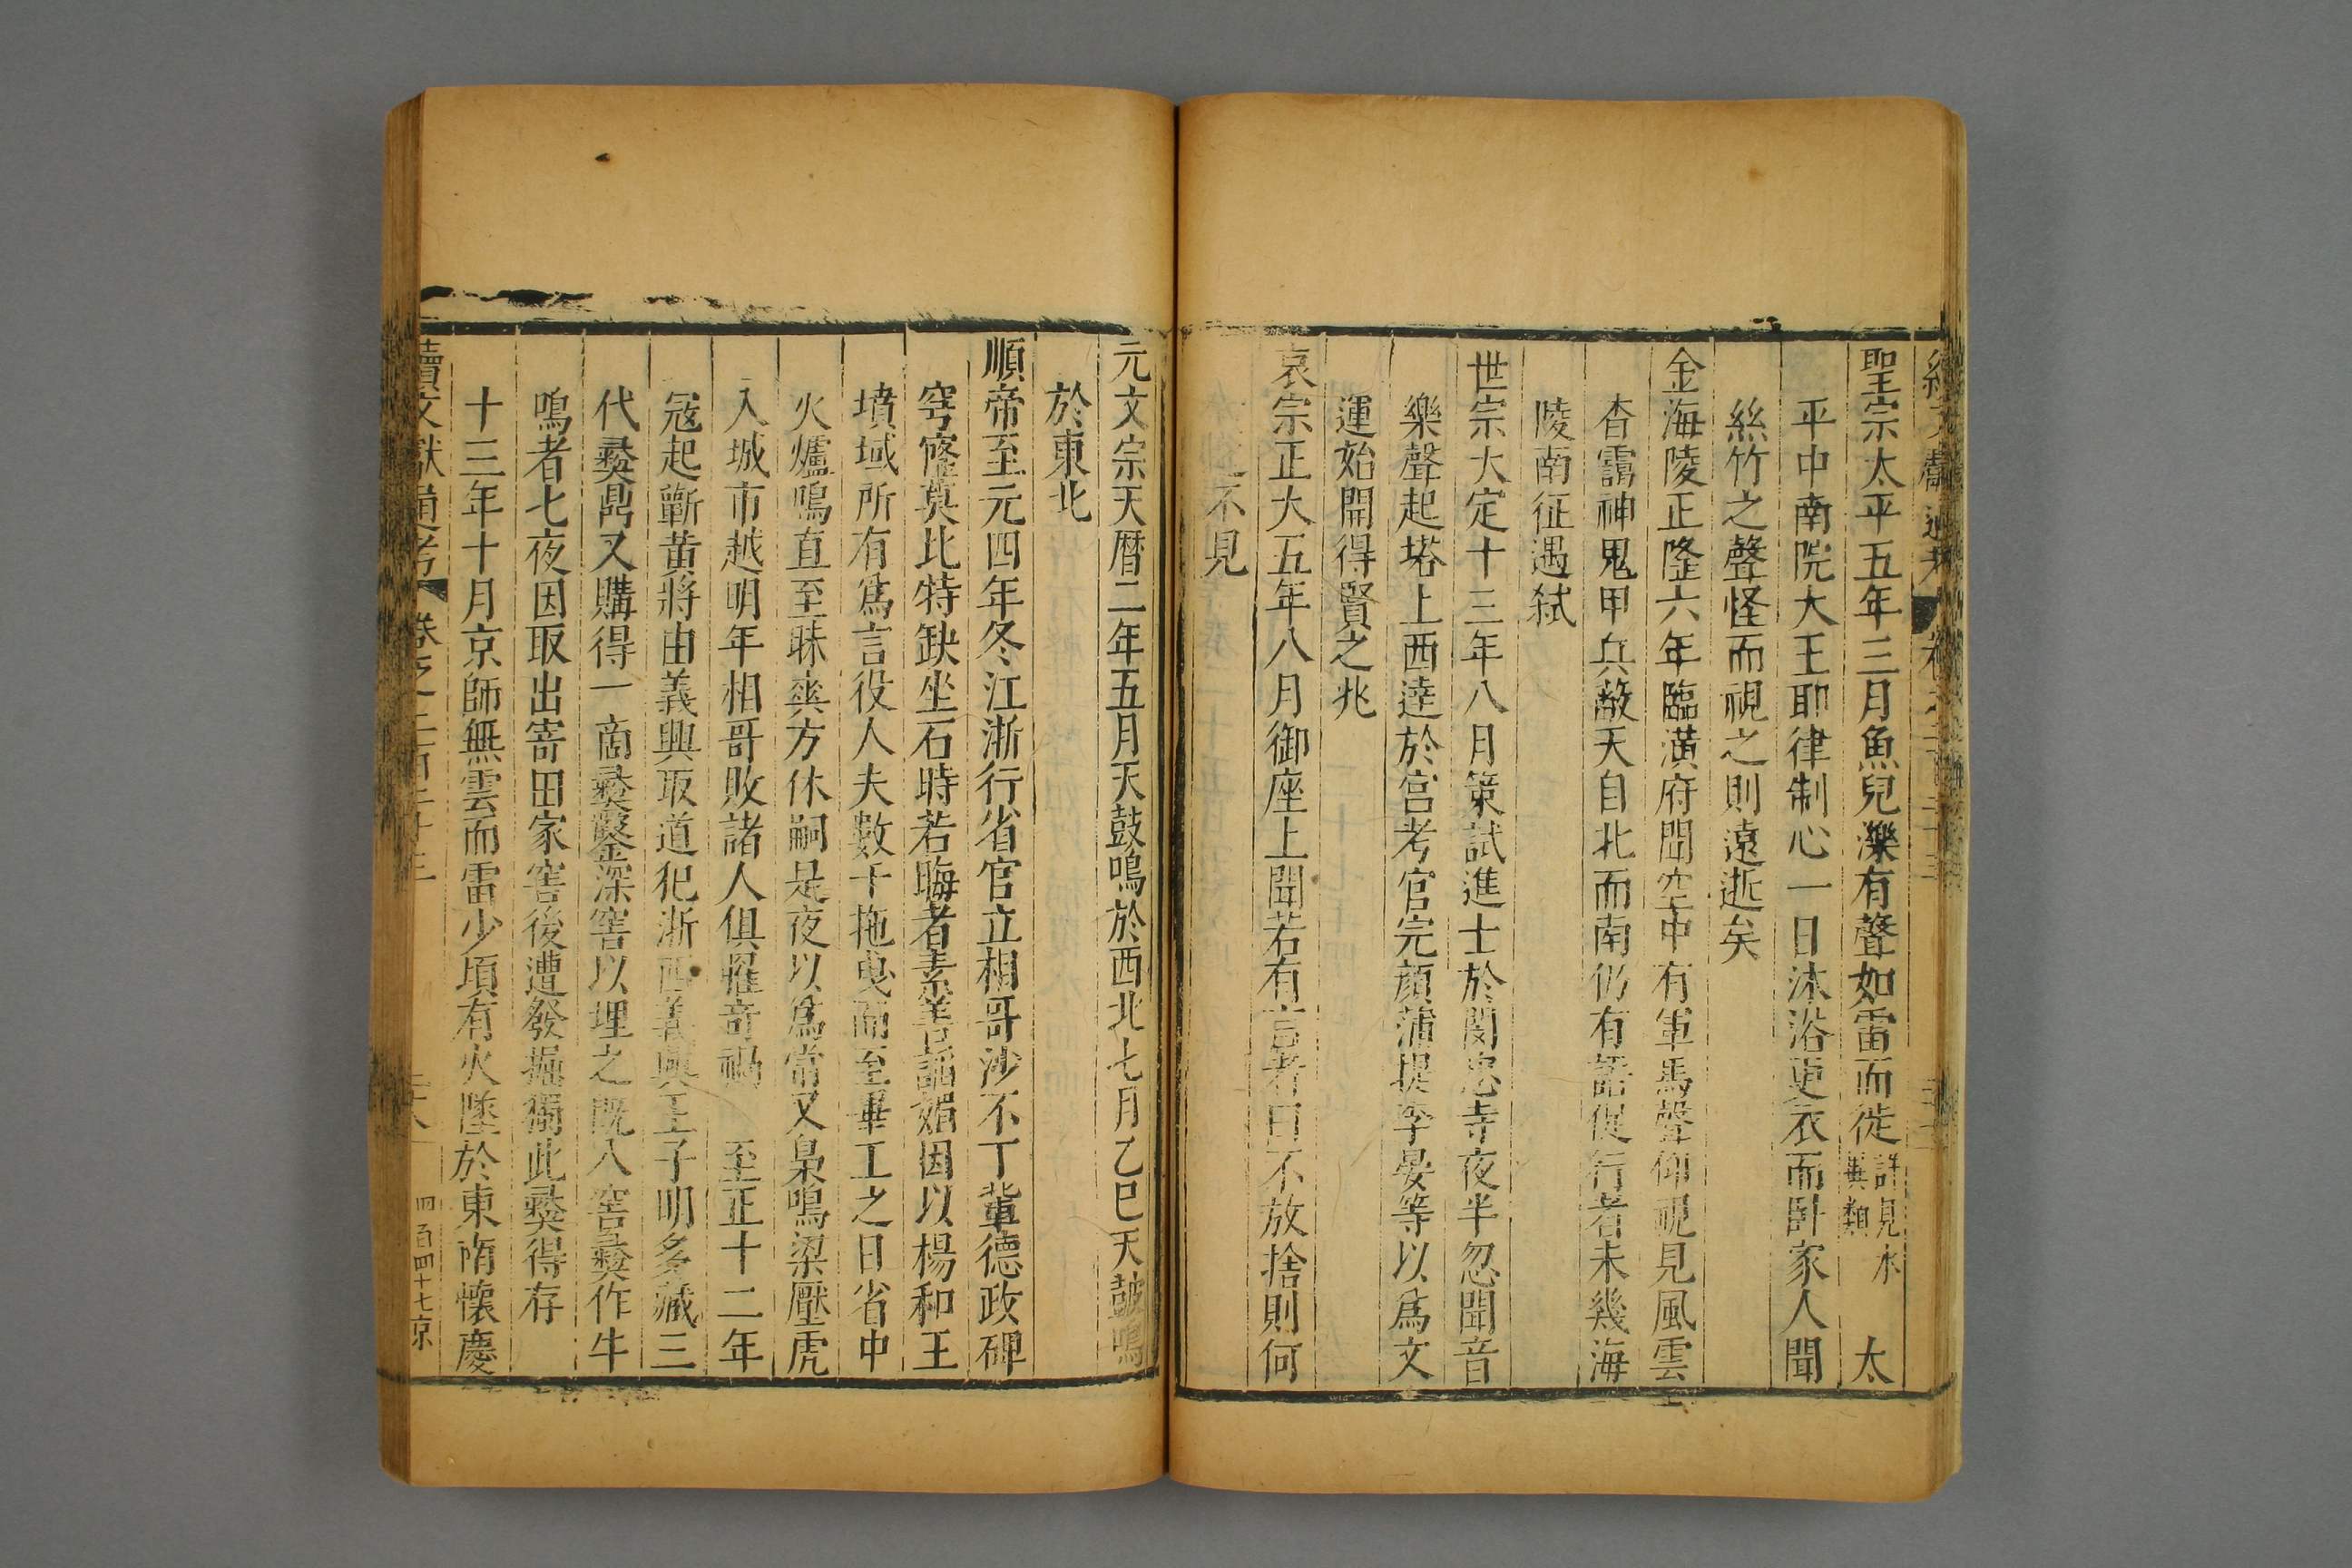 聖宗太平五年三月魚兒濼有聲如雷而徙詳見水異類 太
平中南院大王耶律制心一日沐浴更衣而卧家人聞
絲竹之聲怪而視之則遠逝矣
金海陵正隆六年臨潢府聞空中有軍馬聲仰視見風雲
杳靄神鬼甲兵蔽天自北而南仍有語促行者未幾海
陵南征遇弑
世宗大定十三年八月策試進士於閔忠寺夜半忽聞音
樂聲起塔上西達於宫考官完顔蒲揑李晏等以爲文
運始開得賢之兆
哀宗正大五年八月御座上聞若有言者曰不放捨則何
不見
元文宗天曆二年五月天鼓鳴於西北七月乙巳天鼓鳴
於東北
順帝至元四年冬江浙行省官立相哥沙不丁輦德政碑
穹窿莫比特缺坐石時若晦者素善諂媚因以楊和王
墳域所有爲言役人夫數千拖曳而至畢工之日省中
火爐鳴直至昧爽方休嗣是夜以爲常又梟鳴梁壓虎
入城市越明年相哥敗諸人俱罹奇禍 至正十二年
冦起蘄黄將由義興取道犯浙西義興王子明多藏三
代彝鼎又購得一啇彝鑿深窖以埋之既入窖彝作牛
鳴者七夜因取出寄田家窖後遭發掘獨此彝得存
十三年十月京師無雲而雷少頃有火墜於東南懷慶
續文獻通考 卷之二百二十三 四百四十七京